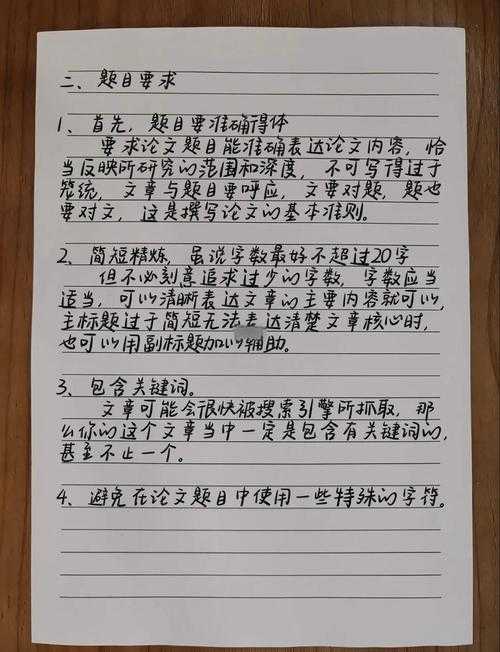 二、题目要求
1、首先，题目要准确得体
要求论文题目能准确表达论文内容，恰
当反映所研究的范围和深度，不可写得过于
笼统，文章与题目要呼应，文要对题，题也
要对文，这是撰写论文的基本准则。
2、简短精炼，虽说字数最好不超过20字
但不必刻意追求过少的字数，字数应当
适当，可以清晰表达文章的主要内容就可以，
主标题过于简短无法表达清楚文章核心时，
也可以用副标题加以辅助。
3、包含关键词。
文章可能会很快被搜索引擎所抓取，那
么你的这个文章当中一定是包含有关键词的，
甚至不止一个。
4、避免在论文题目中使用一些特殊的字符。